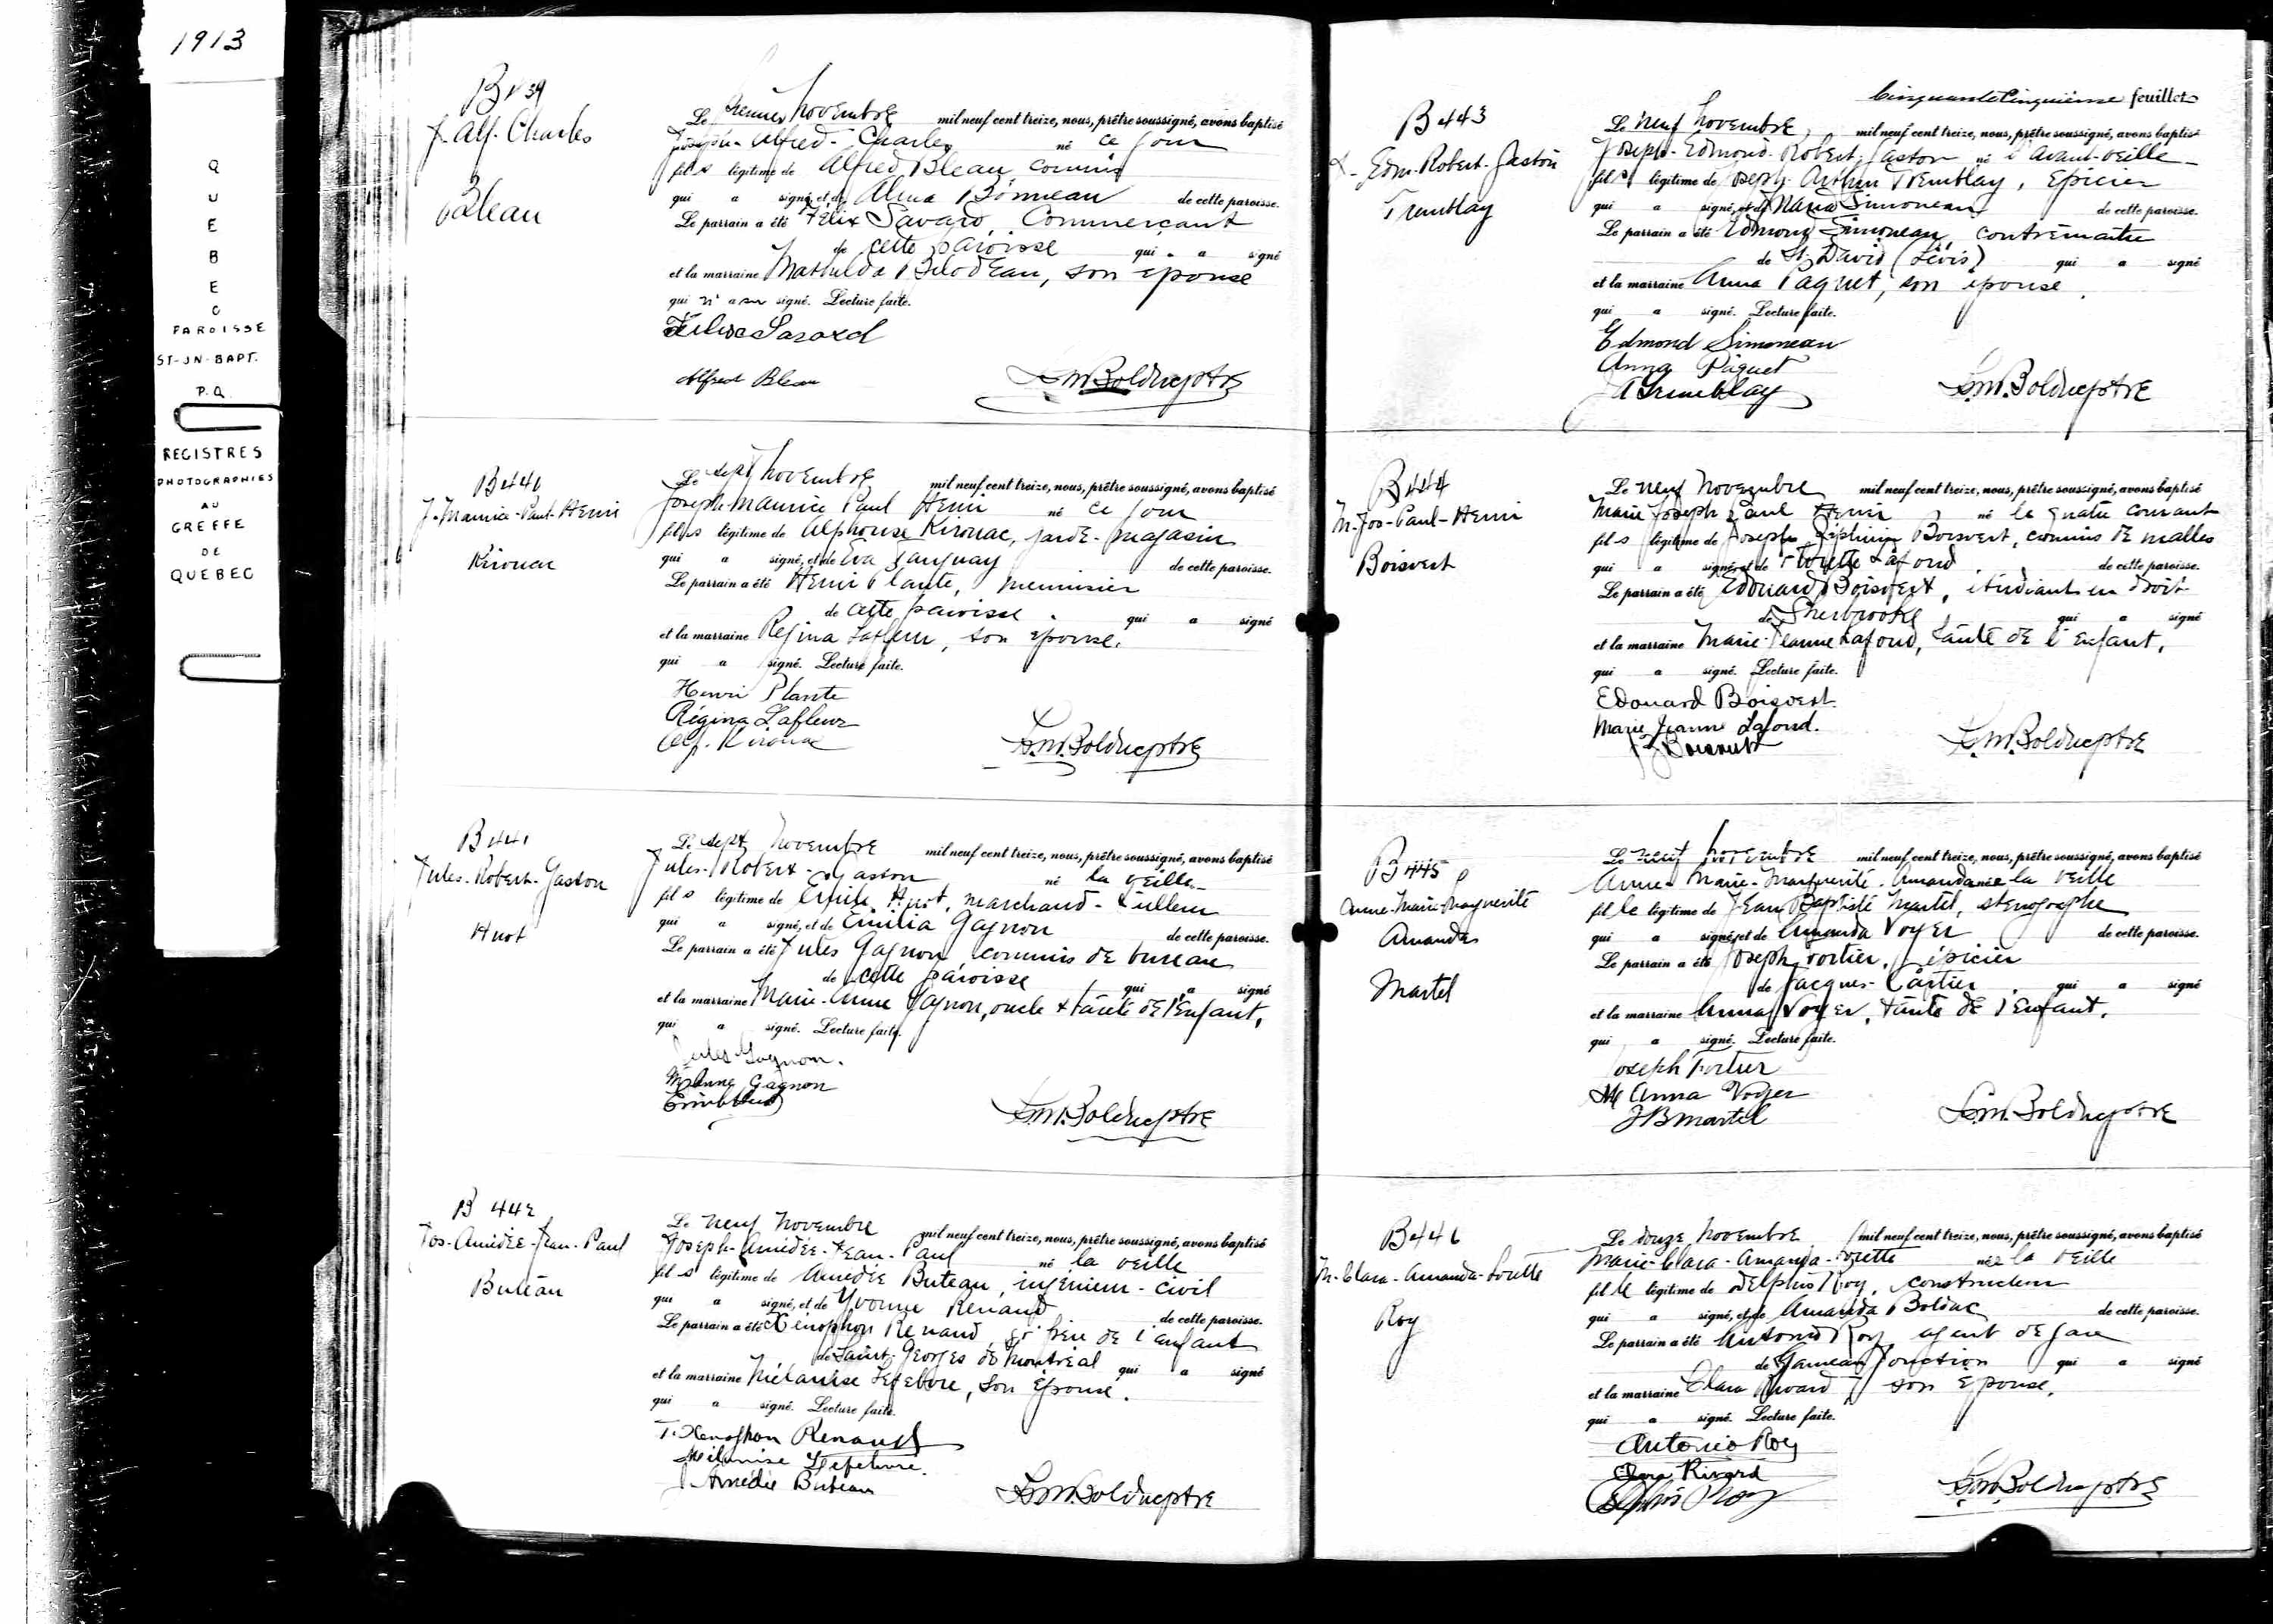 1913
QUEBEC
PAROISSE
ST-JN-BAPT.
P.Q.
REGISTRES
PHOTOGRAPHIES
AU
GREFFE
DE
QUEBEC
B439
J. Alf. Charles
Bleau
Le premier novembre mil neuf cent treize, nous, prêtre soussigné, avons baptisé
Joseph-Alfred-Charles né ce jour
fils légitime de Alfred Bleau, commis
qui a signé, et de Alma Bonneau de cette paroisse.
Le parrain a été Félix Savard, Commerçant
de cette paroisse qui a signé
et la marraine Mathilda Bilodeau, son épouse
qui n'a su signé. Lecture faite.
Félix Savard
Alfred Bleau
L.M. Bolduc ptre
B440
J-Maurice-Paul-Henri
Kirouac
Le sept novembre mil neuf cent treize, nous, prêtre soussigné, avons baptisé
Joseph-Maurice Paul Henri né ce jour
fils légitime de Alphonse Kirouac, garde-magasin
qui a signé, et de Eva Tanguay de cette paroisse.
Le parrain a été Henri Plante, menuisier
de cette paroisse qui a signé
et la marraine Régina Lafleur, son épouse.
qui a signé. Lecture faite.
Henri Plante
Régina Lafleur
Alf. Kirouac
L.M. Bolduc ptre
B441
Jules-Robert-Gaston
Huot
Le sept novembre mil neuf cent treize, nous, prêtre soussigné, avons baptisé
Jules-Robert-Gaston né la veille
fils légitime de Emile Huot, marchand-tailleur
qui a signé, et de Emilia Gagnon de cette paroisse.
Le parrain a été Jules Gagnon, commis de bureau
de cette paroisse qui a signé
et la marraine Marie-Anne Gagnon, oncle & tante de l'enfant,
qui a signé. Lecture faite.
Jules Gagnon.
M Anne Gagnon
Emile Huot
L.M. Bolduc ptre
B 442
Jos-Amédée-Jean-Paul
Buteau
Le neuf novembre mil neuf cent treize, nous, prêtre soussigné, avons baptisé
Joseph-Amédée-Jean-Paul né la veille
fils légitime de Amédée Buteau, ingénieur-civil
qui a signé, et de Yvonne Renaud de cette paroisse.
Le parrain a été Xénophon Renaud, gd père de l'enfant
de Saint-Georges de Montréal qui a signé
et la marraine Mélanise Lefebvre, son épouse.
qui a signé. Lecture faite.
T. Xenophon Renaud
Mélanise Lefebvre.
J. Amédée Buteau
L.M. Bolduc ptre
Cinquante-cinquième feuillet
B443
J-Edm-Robert-Gaston
Tremblay
Le neuf novembre, mil neuf cent treize, nous, prêtre soussigné, avons baptisé
Joseph-Edmond-Robert-Gaston né l'avant-veille
fils légitime de Joseph-Arthur Tremblay, épicier
qui a signé, et de Maria Simoneau de cette paroisse.
Le parrain a été Edmond Simoneau, contremaître
de St David (Lévis) qui a signé
et la marraine Anna Paquet, son épouse.
qui a signé. Lecture faite.
Edmond Simoneau
Anna Paquet
A Tremblay
L.M. Bolduc ptre
B444
M-Jos-Paul-Henri
Boisvert
Le neuf novembre mil neuf cent treize, nous, prêtre soussigné, avons baptisé
Marie Joseph Paul Henri né le quatre courant
fils légitime de Joseph Boisvert, commis de malles
qui a signé, et de Lafond de cette paroisse.
Le parrain a été Edouard Boisvert, étudiant en droit
de Sherbrooke qui a signé
et la marraine Marie-Jeanne Lafond, tante de l'enfant.
qui a signé. Lecture faite.
Edouard Boisvert.
Marie Jeanne Lafond.
Boisvert
L.M. Bolduc ptre
B445
Anne-Marie-Marguerite
Amanda
Martel
Le neuf novembre mil neuf cent treize, nous, prêtre soussigné, avons baptisé
Anne-Marie-Marguerite-Amanda née la veille
fille légitime de Jean Baptiste Martel, stenographe
qui a signé, et de Amanda Voyer de cette paroisse.
Le parrain a été Joseph Fortier, épicier
de Jacques-Cartier qui a signé
et la marraine Anna Voyer, tante de l'enfant.
qui a signé. Lecture faite.
Joseph Fortier
M Anna Voyer
J B Martel
L.M. Bolduc ptre
B446
M-Clara-Amanda-Lorette
Roy
Le douze novembre mil neuf cent treize, nous, prêtre soussigné, avons baptisé
Marie-Clara-Amanda-Lorette née la veille
fille légitime de Delphis Roy, constructeur
qui a signé, et de Amanda Bolduc de cette paroisse.
Le parrain a été Antonio Roy agent de gare
de Garneau Jonction qui a signé
et la marraine Clara Rivard son épouse.
qui a signé. Lecture faite.
Antonio Roy
Clara Rivard
Delphis Roy
L.M. Bolduc ptre